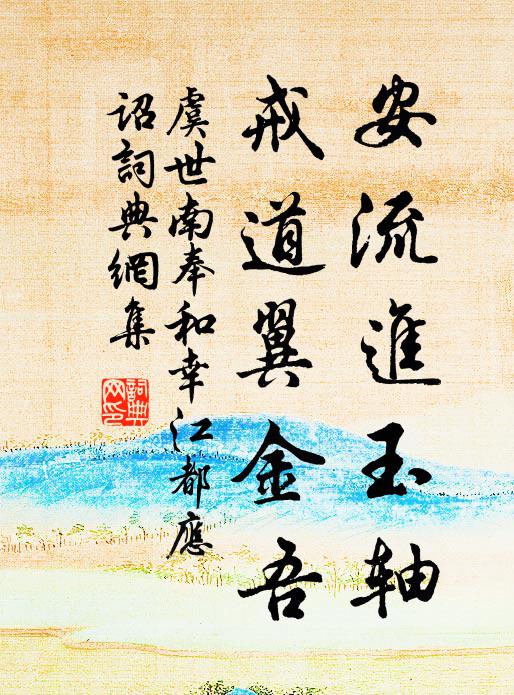 安流進玉轴
戒道翼金吾
虞世南奉和幸江都應
詔詞典網集
詞典网印